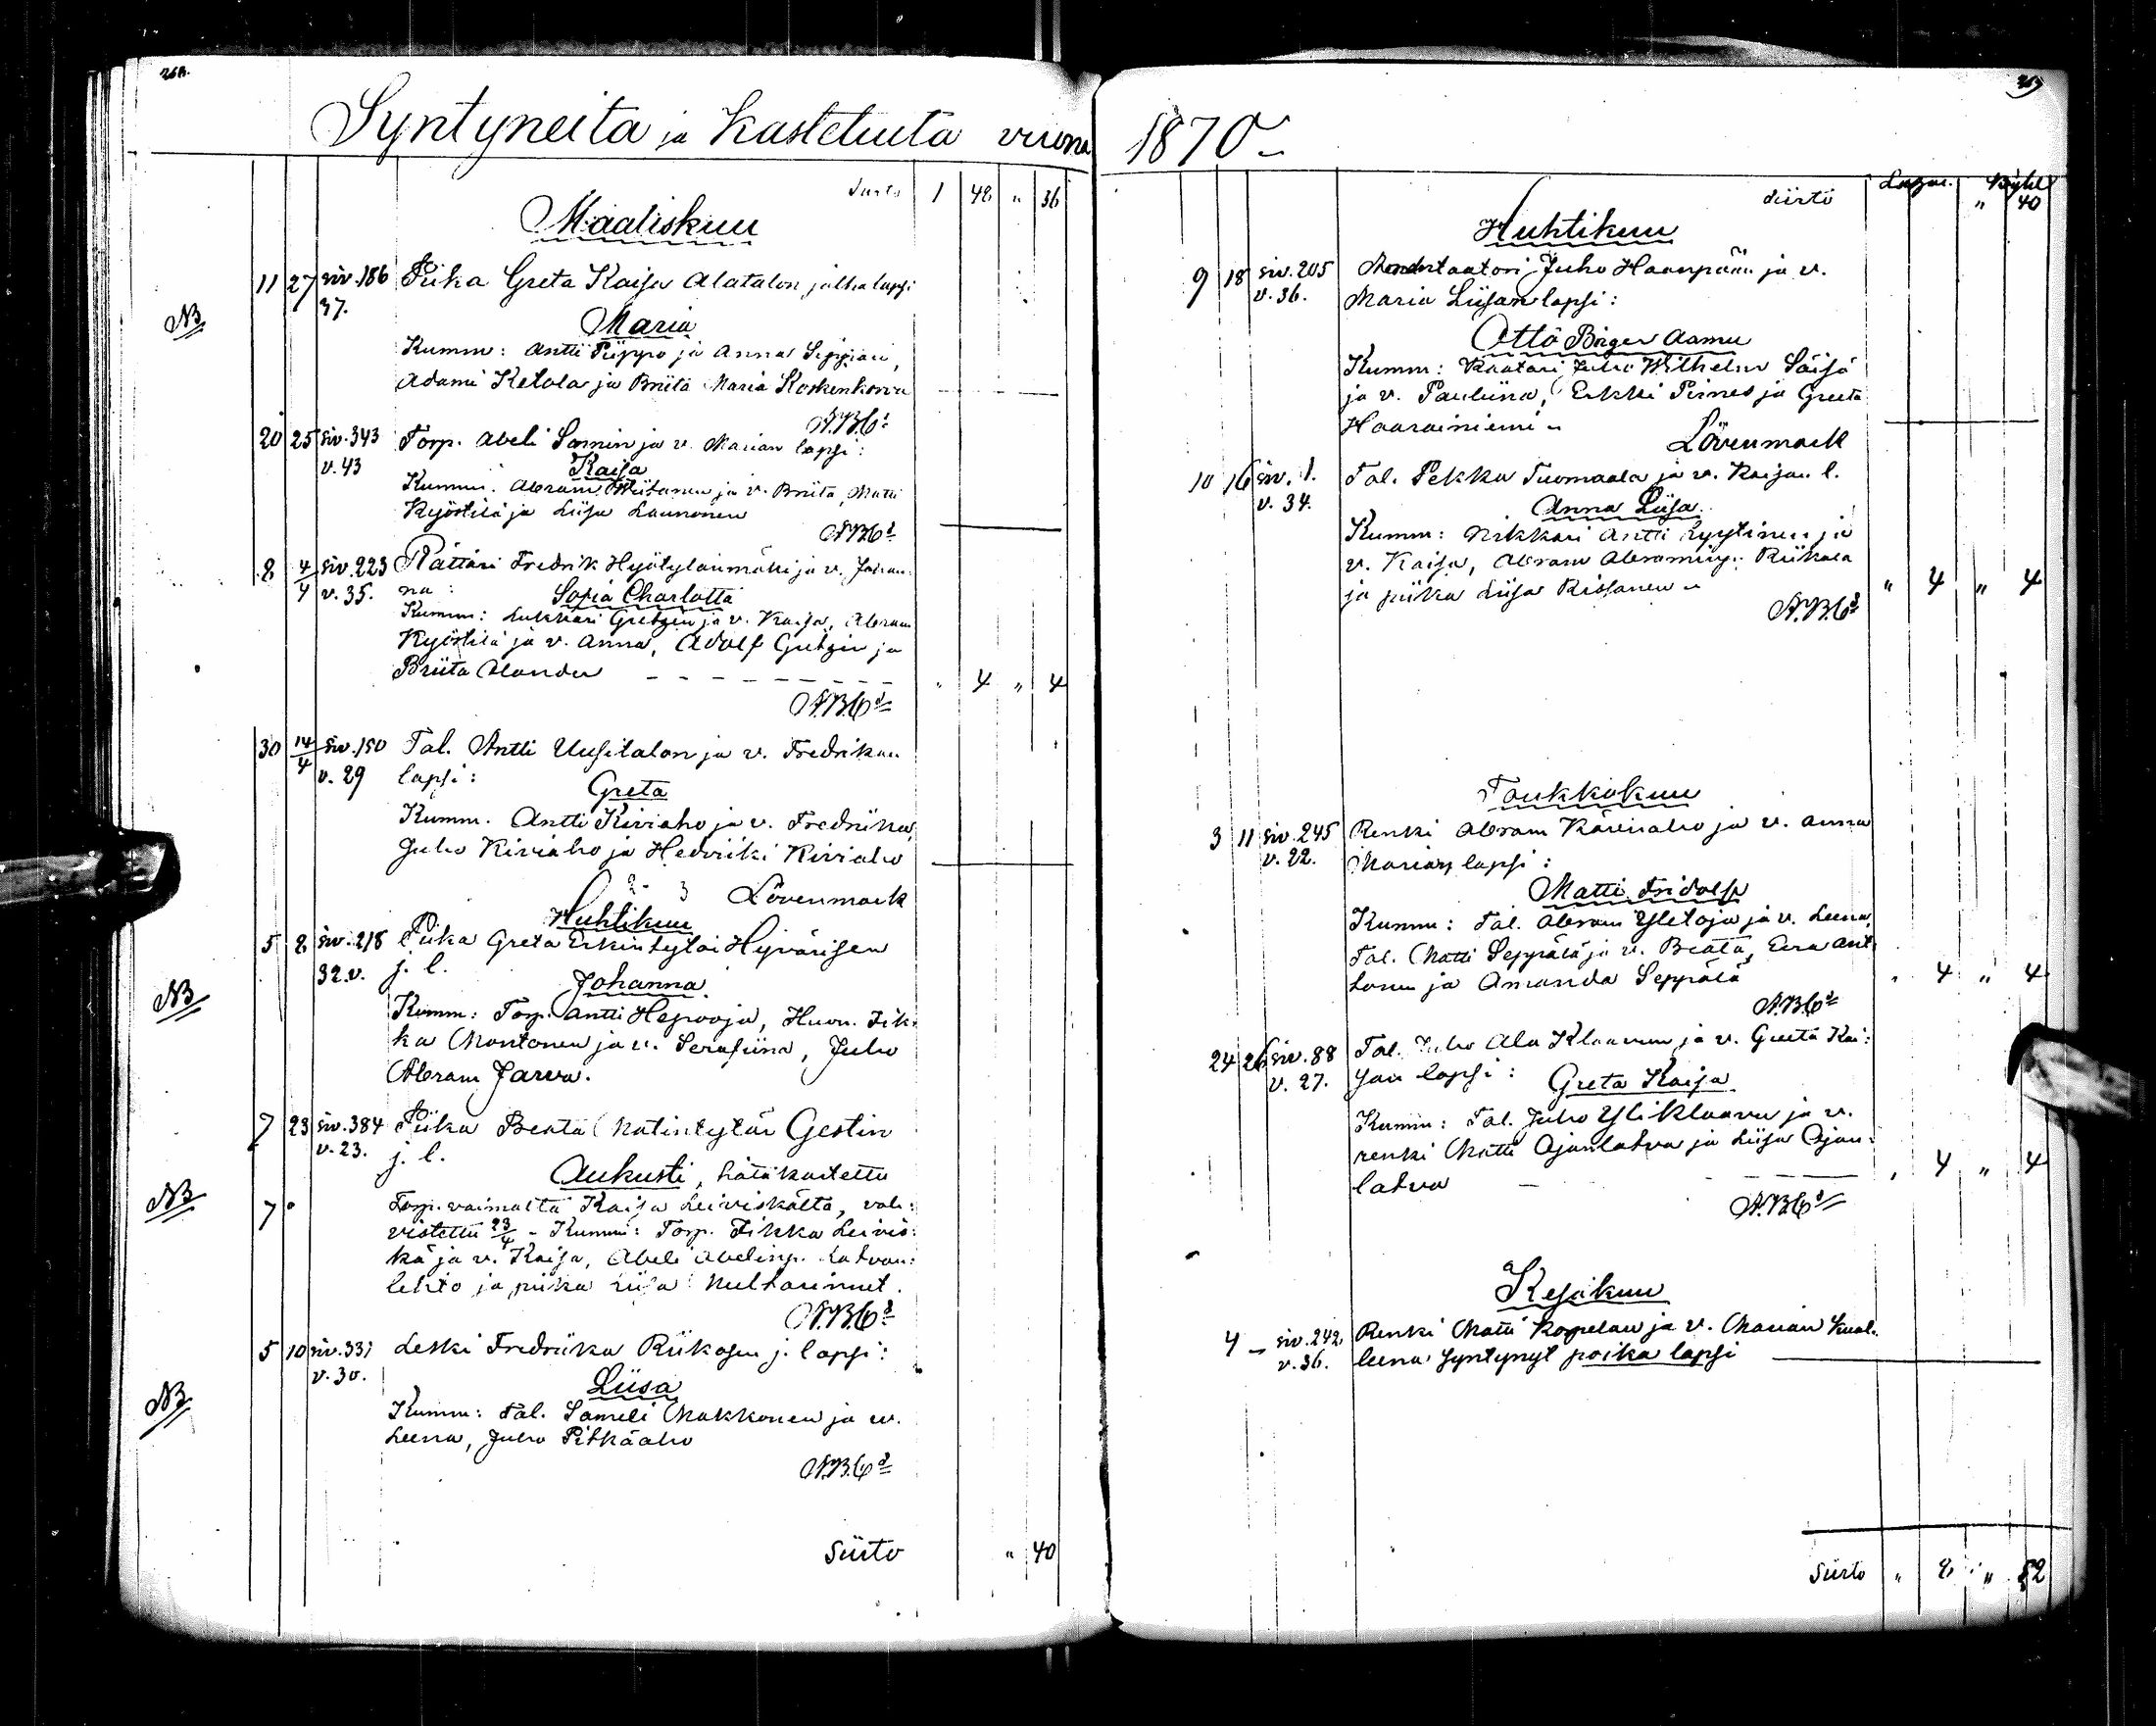 268.
Syntyneitä ja Kastetuita vuona
Siirto 1 48 " 36
Maaliskuu
11 27 siv. 186 Piika Greta Kaisa Alatalon jalka lapsi
37.
NB
Maria
Kumm: Antti Piippo ja Anna
Adami Ketola ja Briita Maria Koskenkorva
N.B.C:
20 25 siv. 343 Torp. Abeli Lamin ja v. Marian lapsi:
v. 43 Kaisa
Kummi. Abram ja v. Briita, Matti
Kyöstilä ja Liisa Launonen
N.B.C:
8 4/4 siv. 223 Räätäri Fredrik Hyötyläinmäki ja v. Johan-
v. 35. na: Sofia Charlotta
Kumm: Lukkari Gretzin ja v. Kaisa, Abram
Kyöstilä ja v. Anna, Adolf Gretzin ja
Briita Alander " 4 " 4
N.B.C:
30 14/4 siv. 150 Tal. Antti Uusitalon ja v. Fredrikan
v. 29 lapsi:
Greta
Kumm. Antti Kiviaho ja v. Fredriika,
Juho Kiviaho ja Hedriki Kiviaho
Lövenmark
Huhtikuu
5 8 siv. 218 Piika Greta Erkintytär Hyvärisen
32. v. j. l.
NB
Johanna
Kumm: Torp. Antti Hepooja, Huon. Fik-
ka Mantonen ja v. Serafiina, Juho
Abram Jarva.
7 23 siv. 384 Piika Beata Matintytär Gestin
v. 23. j. l.
NB
Aukusti, hätäkastettu
7 Torp. vaimolta Kaisa Leiviskältä, vah-
vistettu 23/4 - Kummi: Torp. Fikka Leivis-
kä ja v. Kaisa, Abeli Abelinp. Latvan-
lehto ja piika Liisa
N.B.C:
5 10 siv. 331 Leski Fredriika Riikosen j. lapsi:
v. 30.
NB
Liisa
Kumm: Tal. Sameli Makkonen ja v.
Leena, Juho Pitkäaho
N.B.C:
Siirto " 40
269
1870
Siirto " 40
Huhtikuu
9 18 siv. 205 Juho Haanpään ja v.
v. 36. Maria Liisan lapsi:
Otto Birger Aamu
Kumm: Raatari Juho Wilhelm Säisä
ja v. Pauliina, Erkki Pirnes ja Greeta
Haarainiemi
Lövenmark
10 16 siv. 1. Tal. Pekka Tuomaala ja v. Kaisan l.
v. 34.
Anna Liisa
Kumm: Nikkari Antti Lyytinen ja
v. Kaisa, Abram Abraminp. Riikola
ja piika Liisa Rissanen " 4 " 4
N.B.C:
Toukkokuu
3 11 siv. 245 Renki Abram Kärenaho ja v. Anna
v. 22. Marian lapsi:
Matti Fridolf
Kumm: Tal. Abram Yletoja ja v. Leena,
Tal. Matti Seppälä ja v. Beata, Eera Ant-
Lonen ja Amanda Seppälä " 4 " 4
N.B.C:
24 26 siv. 88 Tal. Juho Ala Klaavun ja v. Greeta Kai-
v. 27. san lapsi: Greta Kaisa
Kumm: Tal. Juho Yliklaavu ja v.
renki Matti Ojanlatva ja Liisa Ojan-
latva " 4 " 4
N.B.C:
Kesäkuu
4 - siv. 242. Renki Matti Kopelan ja v. Marian kual-
v. 36. leena syntynyt poika lapsi
Siirto " 8 " 52